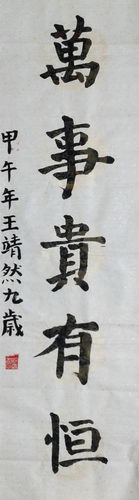 萬事貴有恒
甲午年王靖然九歲